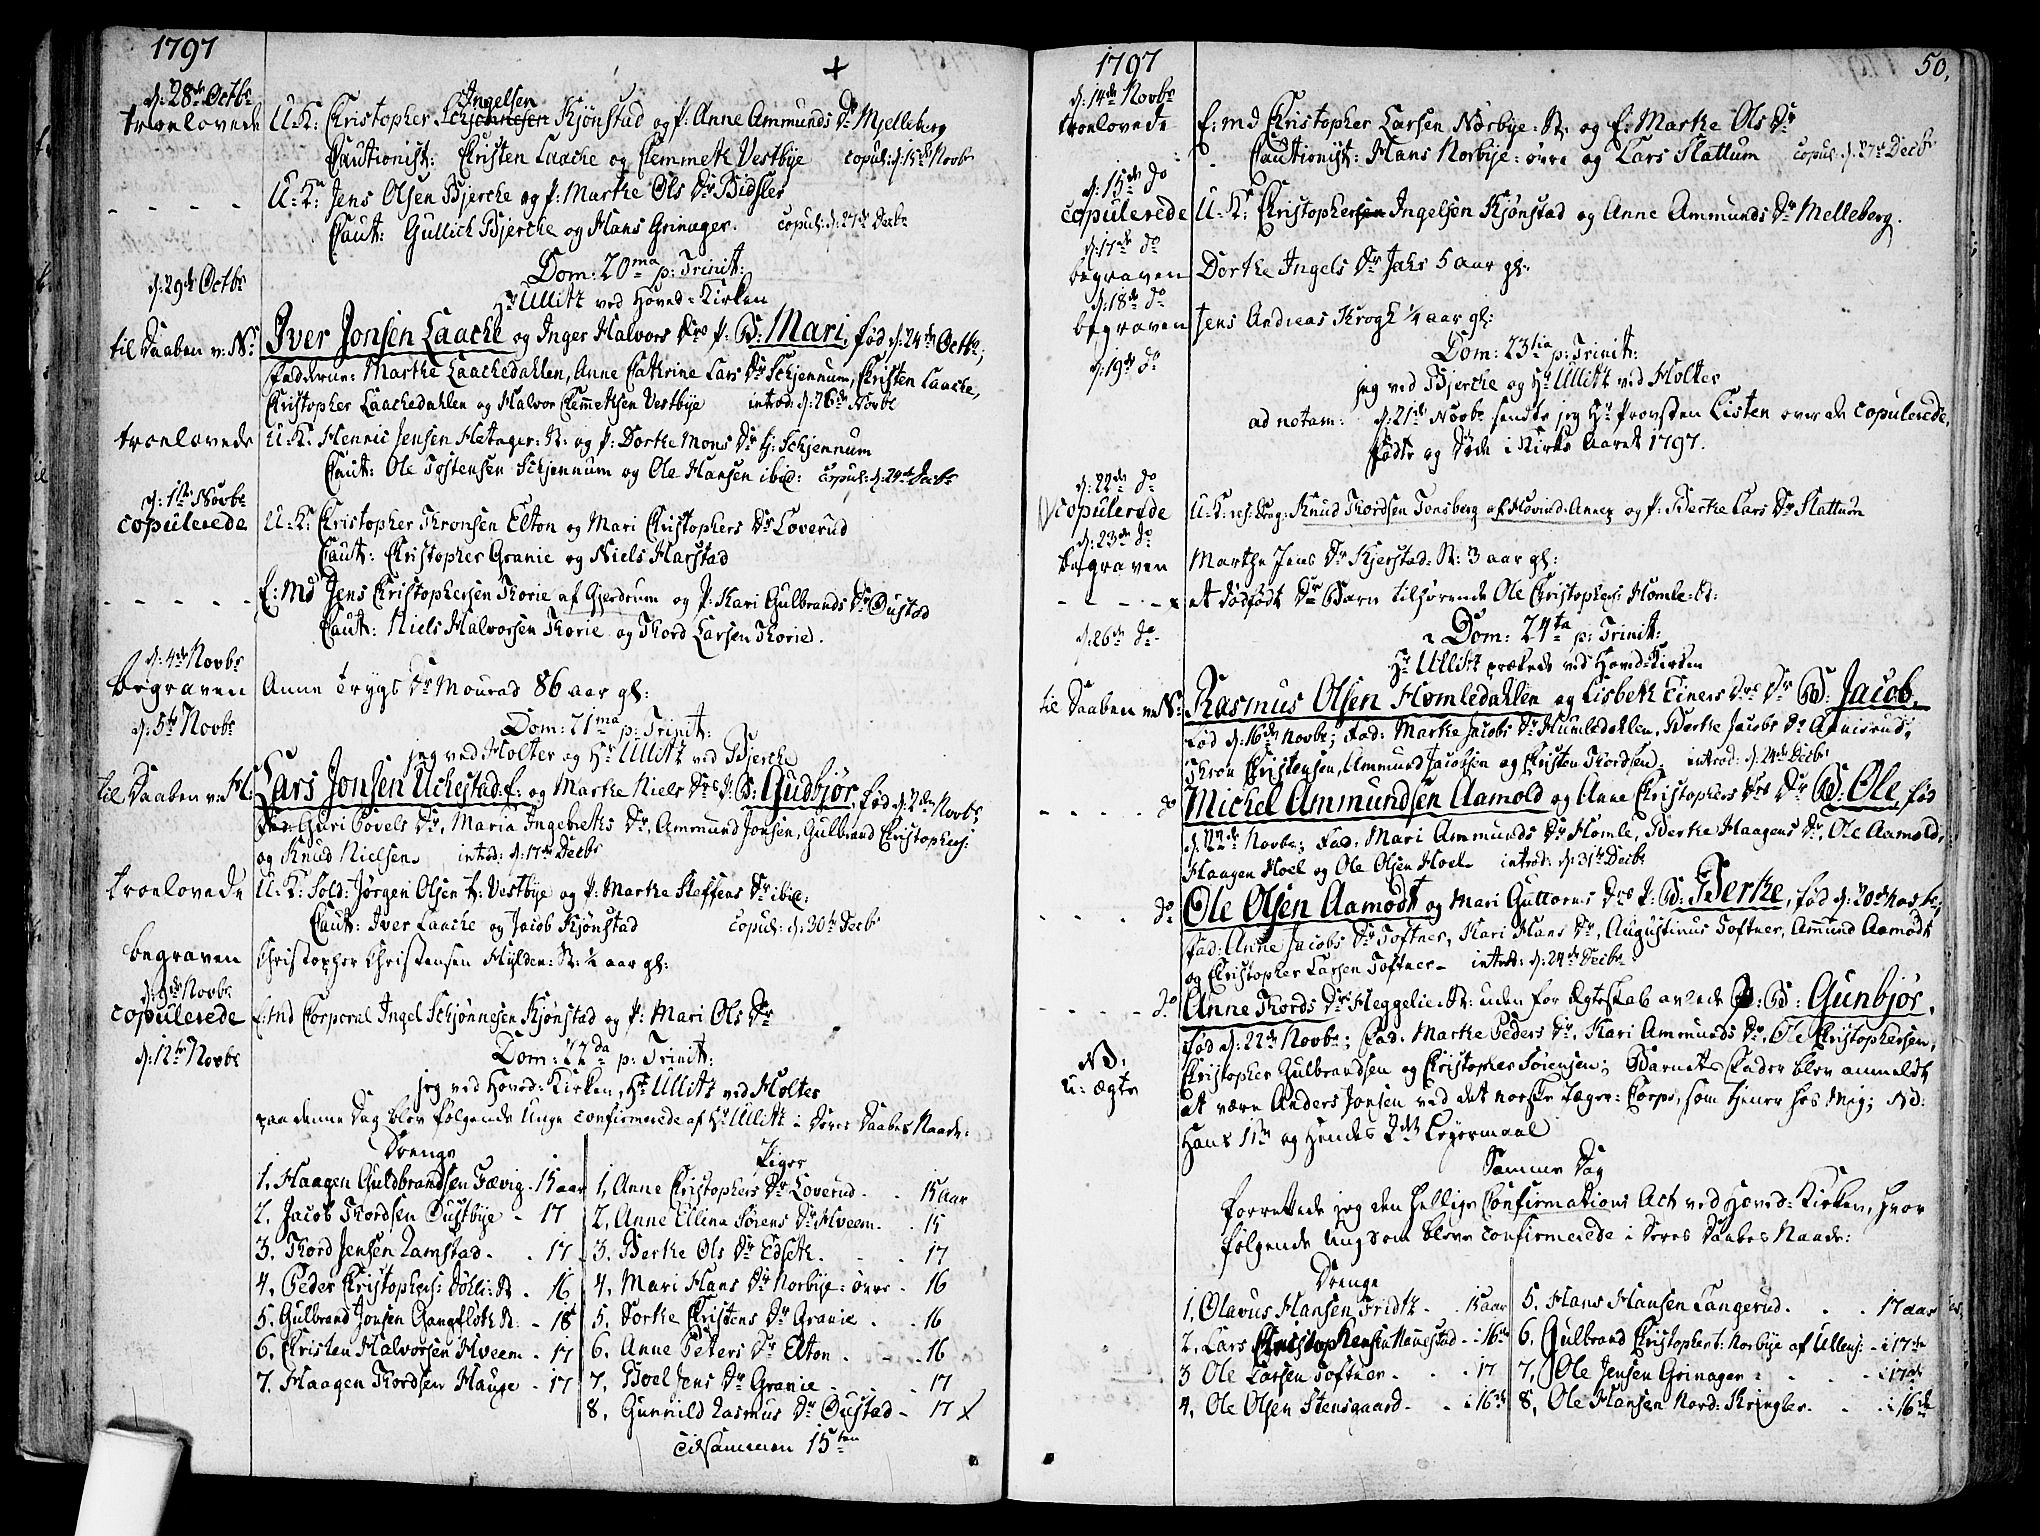 1797
+
d: 28de Octbr
troelovede U:K: Christopher Schjønnesen Ingelsen Kjønstad og P: Anne Ammunds Dr Mjelleberg
Cautionist: Christen Laache og Clemmeth Vestbye copul: d: 15de Novbr
- - - - U:K: Jens Olsen Bjerche og P: Marthe Ols Dr Bidsler
Caut: Gullich Bjerche og Hans Grinager. copul: d: 27de Decbr
d: 29de Octbr Dom: 20ma p: Trinit:
Hr Ullitz ved Hoved-Kirken
til Daaben v: N: Iver Jonsen Laache og Inger Halvors Drs P: B: Mari, fød d: 24de Octbr;
Fadderne: Marthe Laachedahlen, Anne Cathrine Lars Dr Schjennum, Christen Laache,
Christopher Laachedahlen og Halvor Clemmetsen Vestbye introd: d: 26de Novbr
troelovede U:K: Henric Jensen Hetager: N: og P: Dorthe Mons Dr Schjennum
Caut: Ole Tostensen Schjennum og Ole Hansen ibid: copul: d: 29de Decbr
d: 1ste Novbr
copulerede U:K: Christopher Thronsen Elton og Mari Christophers Dr Loverud
Caut: Christopher Granie og Niels Harstad
- - - - - E: Md Jens Christophersen Thorie af Gjerdrum og P: Kari Gulbrands Dr Oustad
Caut: Niels Halvorsen Thorie og Thord Larsen Thorie.
d: 4de Novbr
begraven Anne Trygs Dr Mourad 86 aar gl:
d: 5te Novbr Dom: 21ma p: Trinit:
jeg ved Holter og Hr Ullitz ved Bjerche
til Daaben v: H: Lars Jonsen Uchestad: E: og Marthe Niels Drs P: B: Gudbjør, fød d: 2den Novbr
Fad: Guri Povels Dr, Maria Ingebreths Dr, Ammund Jonsen, Gulbrand Christophers:
og Knud Nielsen. introd: d: 17de Decbr
troelovede U:K: Sold: Jørgen Olsen Vestbye og P: Marthe Steffens Dr ibid:
Caut: Iver Laache og Jacob Kjønstad copul: d: 30te Decbr
begraven Christopher Christensen Hylden: N: ½ aar gl:
d: 9de Novbr
copulerede E: Md Corporal Ingel Schjønnesen Kjønstad og P: Mari Ols Dr
d: 12te Novbr Dom: 22da p: Trinit:
jeg ved Hoved-Kirken, Hr Ullitz ved Holter
paa denne Dag blev følgende Unge confirmerede af Hr Ullitz i Deres Daabes Naade:
Drenge Piger
1. Haagen Guldbrandsen Fævig - 15 aar 1, Anne Christophers Dr Loverud - - 15 Aar
2. Jacob Thordsen Oustbye - 17 2, Anne Elina Sørens Dr Hveem - - 15
3. Thord Jensen Ramstad - - 17 3. Berthe Ols Dr Edseth - - - 17
4. Peder Christophers: Døhli: N - 16 4. Mari Hans Dr Norbye: øvre - 16
5. Gulbrand Jonsen Gangfloth N: - 18 5. Dorthe Christens Dr Granie - - 16
6. Christen Halvorsen Hveem - 17 6. Anne Peters Dr Elton - - - 16
7. Haagen Thordsen Hauge - 17 7. Boel Jens Dr Granie - - - 17
8. Gunnild Rasmus Dr Oustad - 17 x
Tilsammen 15ten
1797
50.
d: 14de Novbr
troelovede E: Md Christopher Larsen Norbye: N: og E: Marthe Ols Dr
Cautionist: Hans Norbye: øvre og Lars Slattum copul: d: 27de Decbr
d: 15de do
copulerede U:K: Christophersen Ingelsen Kjønstad og Anne Ammunds Dr Melleberg.
d: 17de do
begraven Dorthe Ingels Dr Jahr 5 aar gl:
d: 18de do
begraven Jens Andreas Krogh ¼ aar gl:
d: 19de do Dom: 23tia p: Trinit:
jeg ved Bjerche og Hr Ullitz ved Holter
ad notam: d: 21de Novbr sendte jeg Hr Provsten Listen over de copulerede,
Fødte og Døde i Kirke Aaret 1797.
d: 22de do
copulerede U:K: Knud Thordsen Tonsberg af Hovind-Annex og P: Berthe Lars Dr Slattum
d: 23de do
begraven Marthe Jens Dr Kjerstad: N: 3 aar gl:
- - - - et dødfødt Dr Barn tilhørende Ole Christophers: Homle: N:
d: 26de do Dom: 24ta p: Trinit:
Hr Ullitz prækede ved Hoved-Kirken
til Daaben v: N: Rasmus Olsen Homledahlen og Lisbeth Einers Drs Dr B: Jacob,
fød d: 16de Novbr; Fad: Marthe Jacobs Dr Humledahlen, Berthe Jacobs Dr Asnisrud,
Thron Christensen, Ammund Jacobsen og Christen Thordsen. introd: d: 24de Decbr
- - - - do Michel Ammundsen Aamold og Anne Christophers Drs Dr B: Ole, fød
d: 22de Novbr; Fad: Mari Ammunds Dr Homle, Berthe Haagens Dr, Ole Aamold,
Haagen Hoel og Ole Olsen Hoel introd: d: 31te Decbr
- - - - do Ole Olsen Aamodt og Mari Guttorms Drs P: B: Berthe, fød d: 20de Novbr;
Fad: Anne Jacobs Dr Toftner, Kari Hans Dr, Augustinus Toftner, Amund Aamodt
og Christopher Larsen Toftner - introd: d: 24de Decbr
- - - - do Anne Thords Dr Heggelie: N: uden for Ægteskab avlede B: Gunbjør,
NB. U: ægte
fød d: 22de Novbr; Fad: Marthe Peders Dr, Kari Ammunds Dr, Ole Christophersen,
Christopher Gulbrandsen og Christopher Sørensen; Barnets Fader blev anmeldt
at være Anders Jonsen ved det norske Jæger-Corps, som tjener hos Mig; NB:
Hans 1ste og Hendes 2det Leyermaal
Samme Dag
forrettede jeg den hellige Confirmations Act ved Hoved-Kirken, hvor
følgende Ungdom bleve confirmerede i Deres Daabes Naade:
Drenge
1. Olavus Hansen Fridtz - - 15 aar 5. Hans Hansen Langerud - - - 17 aar
2. Lars Christophersen Hannestad - i 16de 6. Gulbrand Christophers: Norbye af Ullens: - i 17de
3 Ole Larsen Toftner - - - 17 7. Ole Jensen Grinager - - - i 17de
4. Ole Olsen Stensgaard - - i 16de 8. Ole Hansen Nord: Kringler - - i 16de